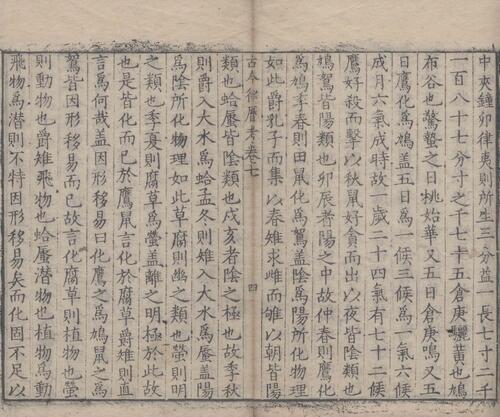 中夾鍾卯律夷則所生三分益一長七寸二千
一百八十七分寸之千七十五倉庚驪黃也鳩
布谷也驚蟄之日桃始華又五日倉庚鳴又五
日鷹化為鳩蓋五日為一候三候為一氣六候
成月六氣成時故一歲二十四氣有七十二候
鷹好殺而擊以秋鼠好貪而出以夜皆陰類也
鳩鴽皆陽類也卯辰者陽之中故仲春則鷹化
為鳩季春則田鼠化為鴽蓋陰為陽所化物理
如此爵乳子而集以春雉求雌而雊以朝皆陽
古今律曆考卷七
四
類也蛤蜃皆陰類也戌亥者陰之極也故季秋
則爵入大水為蛤孟冬則雉入大水為蜃蓋陽
為陰所化物理如此草腐則幽之類也螢則明
之類也季夏則腐草為螢蓋離之明極於此故
也是皆化而已於鷹鼠言化於腐草爵雉則直
言為何哉蓋因形移易曰化鷹之為鳩鼠之為
鴽皆因形移易而已故言化腐草則植物也螢
則動物也爵雉飛物也蛤蜃潛物也植物為動
飛物為潛則不特因形移易矣而化固不足以